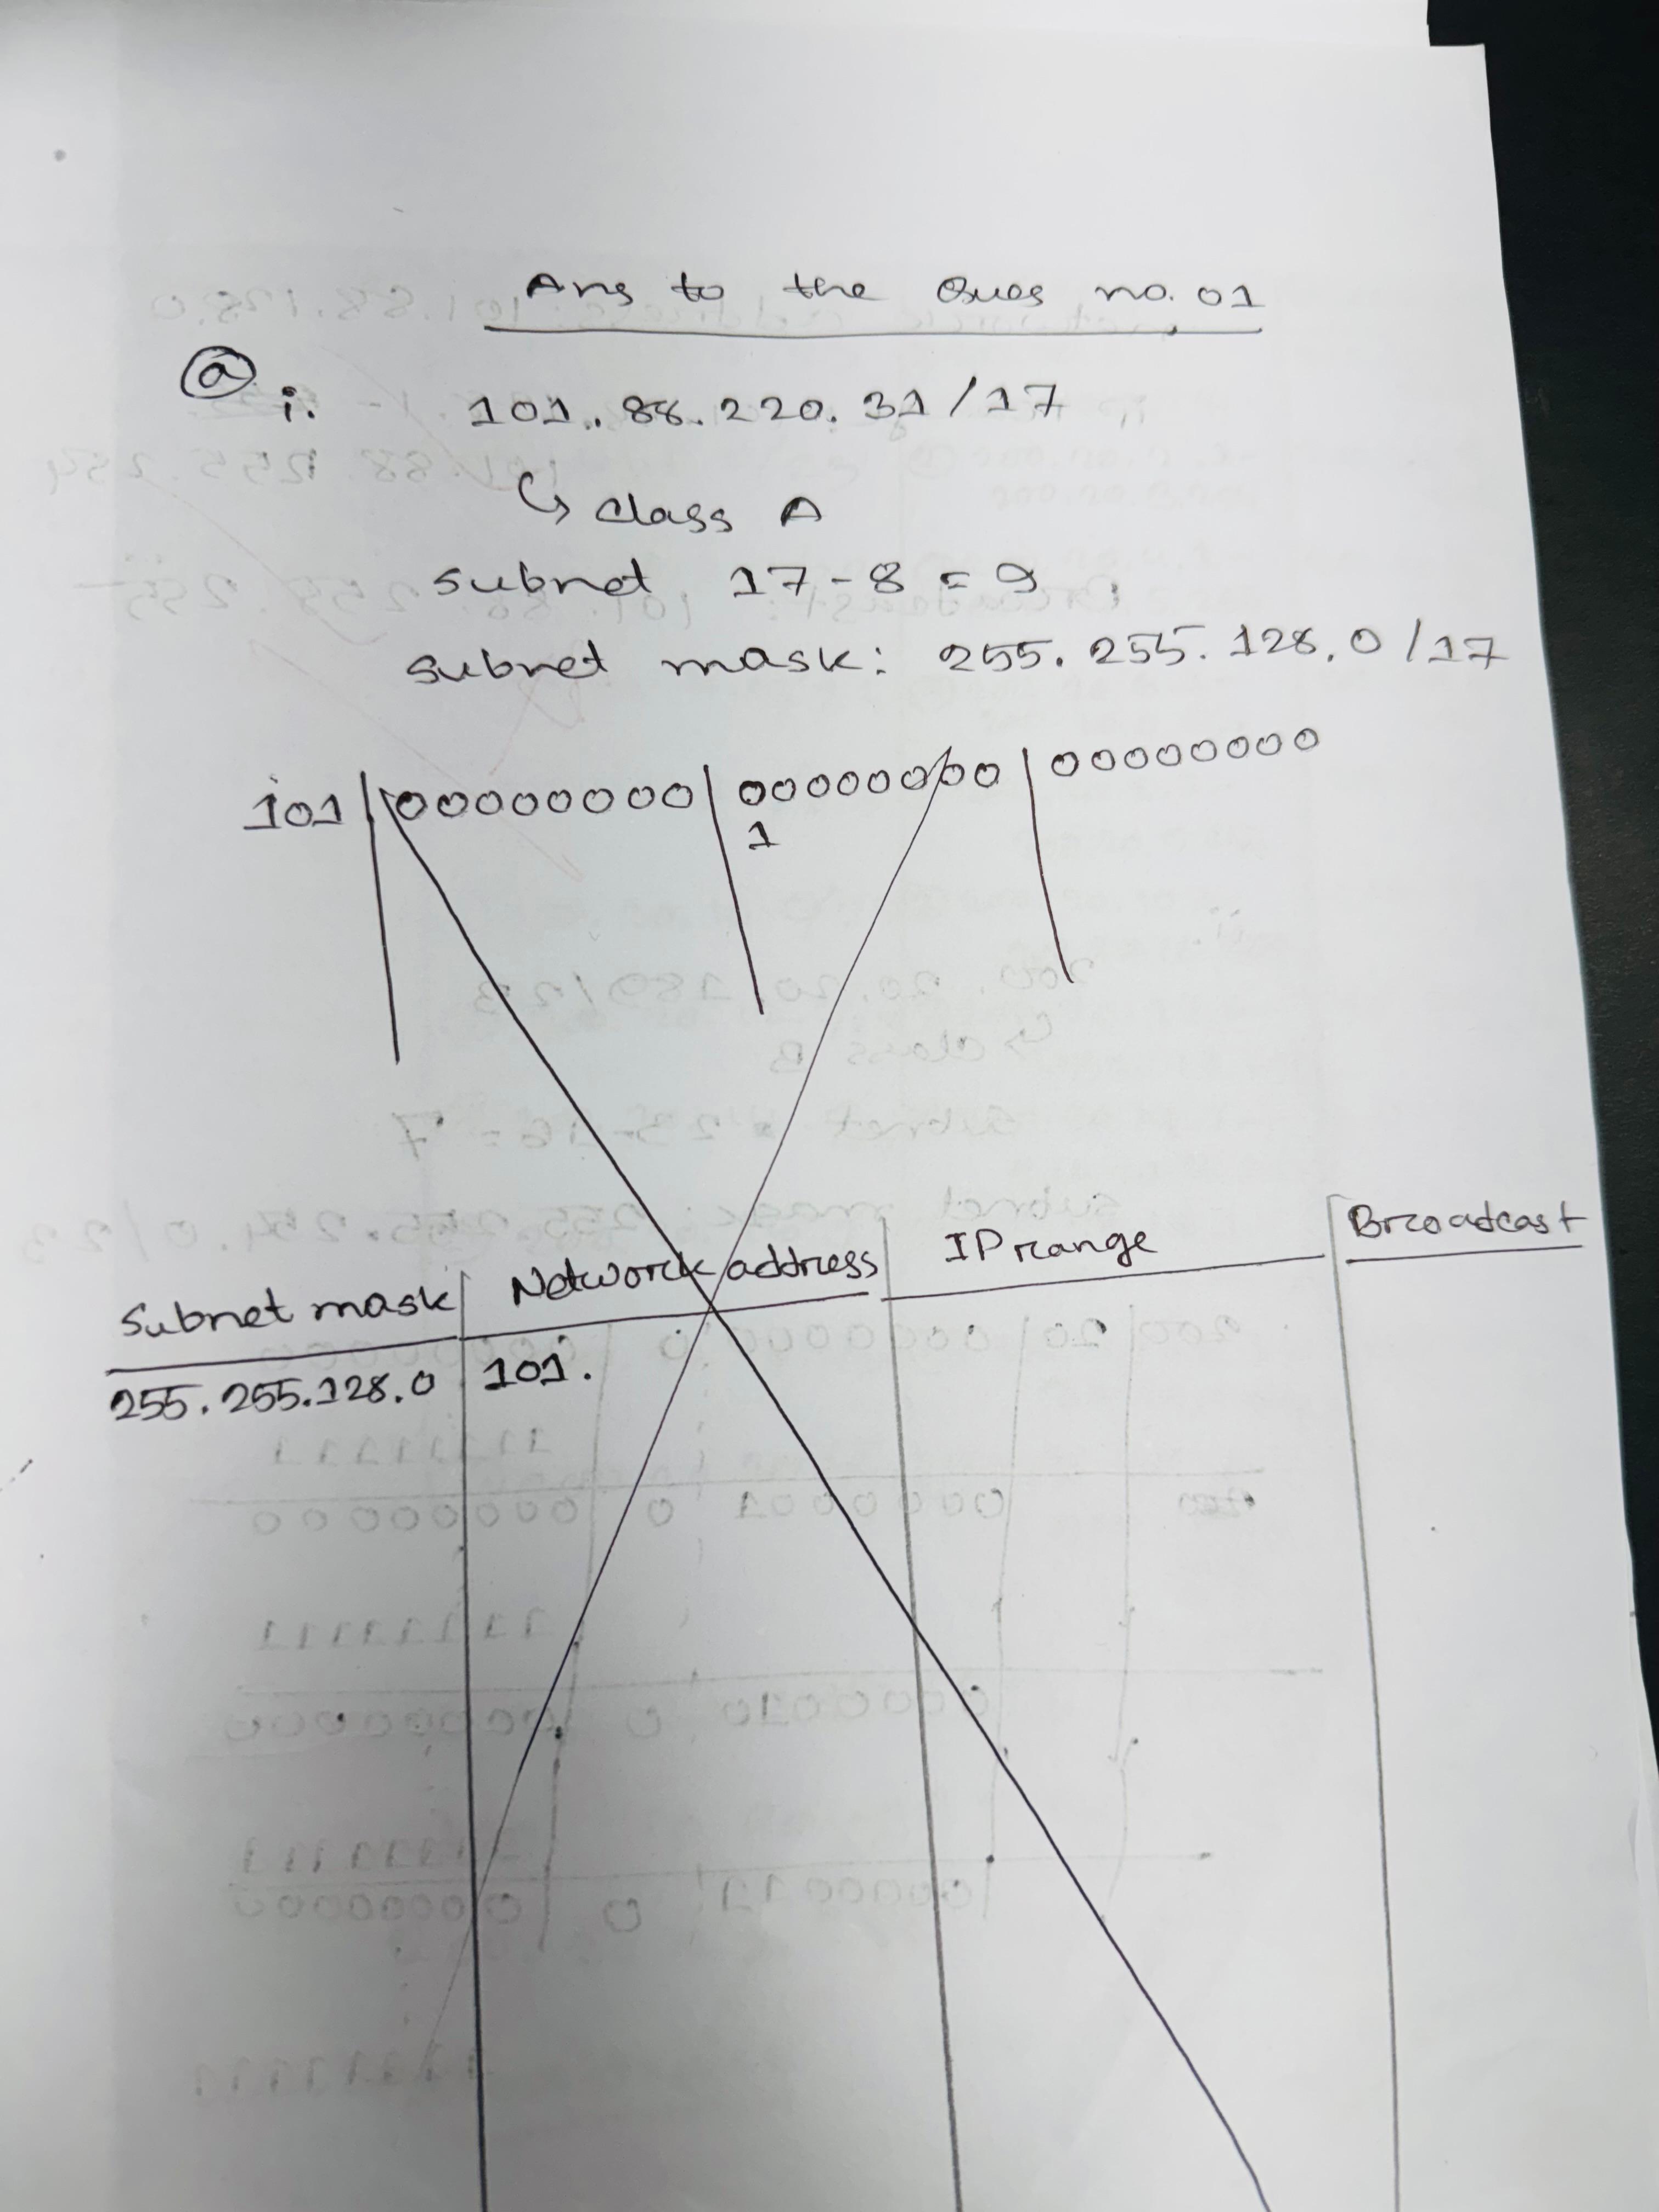 Ans to the Ques no. 01
a i. 101.. 88. 220. 31 / 17
↳ class A
subnet 17 - 8 = 9
subnet mask: 255. 255. 128. 0 / 17
101 | 00000000 | 00000000 | 00000000
1
Subnet mask | Network address | IP range | Broadcast
255. 255. 128. 0 | 101.